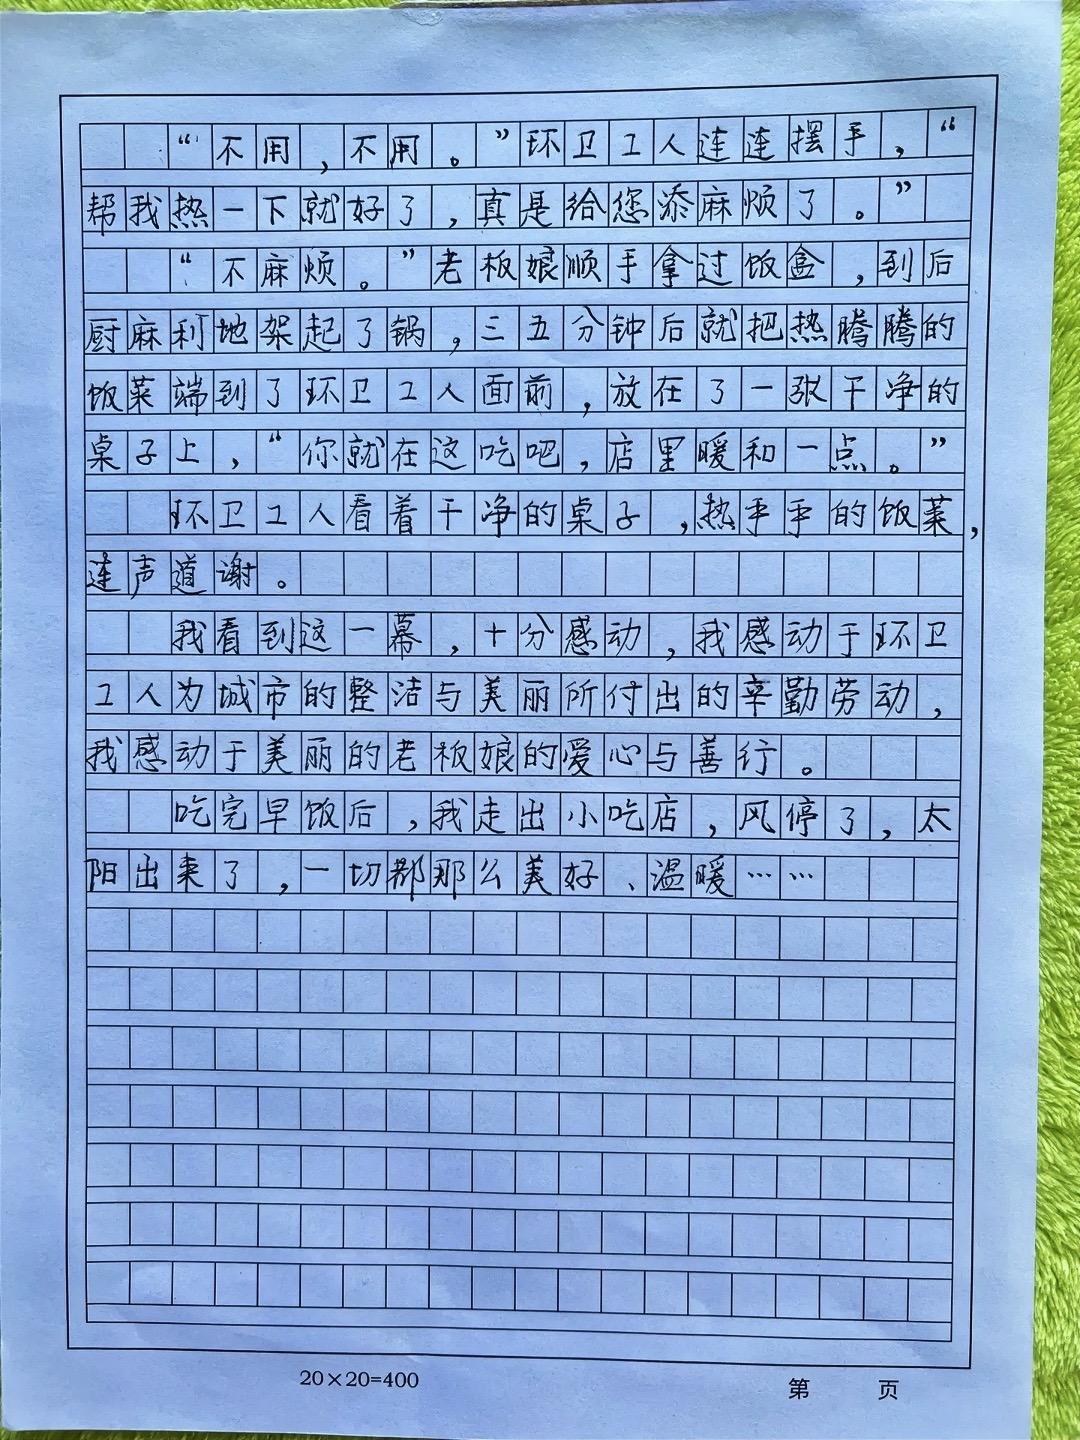 “不用，不用。”环卫工人连连摆手，“
帮我热一下就好了，真是给您添麻烦了。”
“不麻烦。”老板娘顺手拿过饭盒，到后
厨麻利地架起了锅，三五分钟后就把热腾腾的
饭菜端到了环卫工人面前，放在了一张干净的
桌子上，“你就在这吃吧，店里暖和一点。”
环卫工人看着干净的桌子，热乎乎的饭菜，
连声道谢。
我看到这一幕，十分感动，我感动于环卫
工人为城市的整洁与美丽所付出的辛勤劳动，
我感动于美丽的老板娘的爱心与善行。
吃完早饭后，我走出小吃店，风停了，太
阳出来了，一切都那么美好、温暖……
20×20=400
第 页